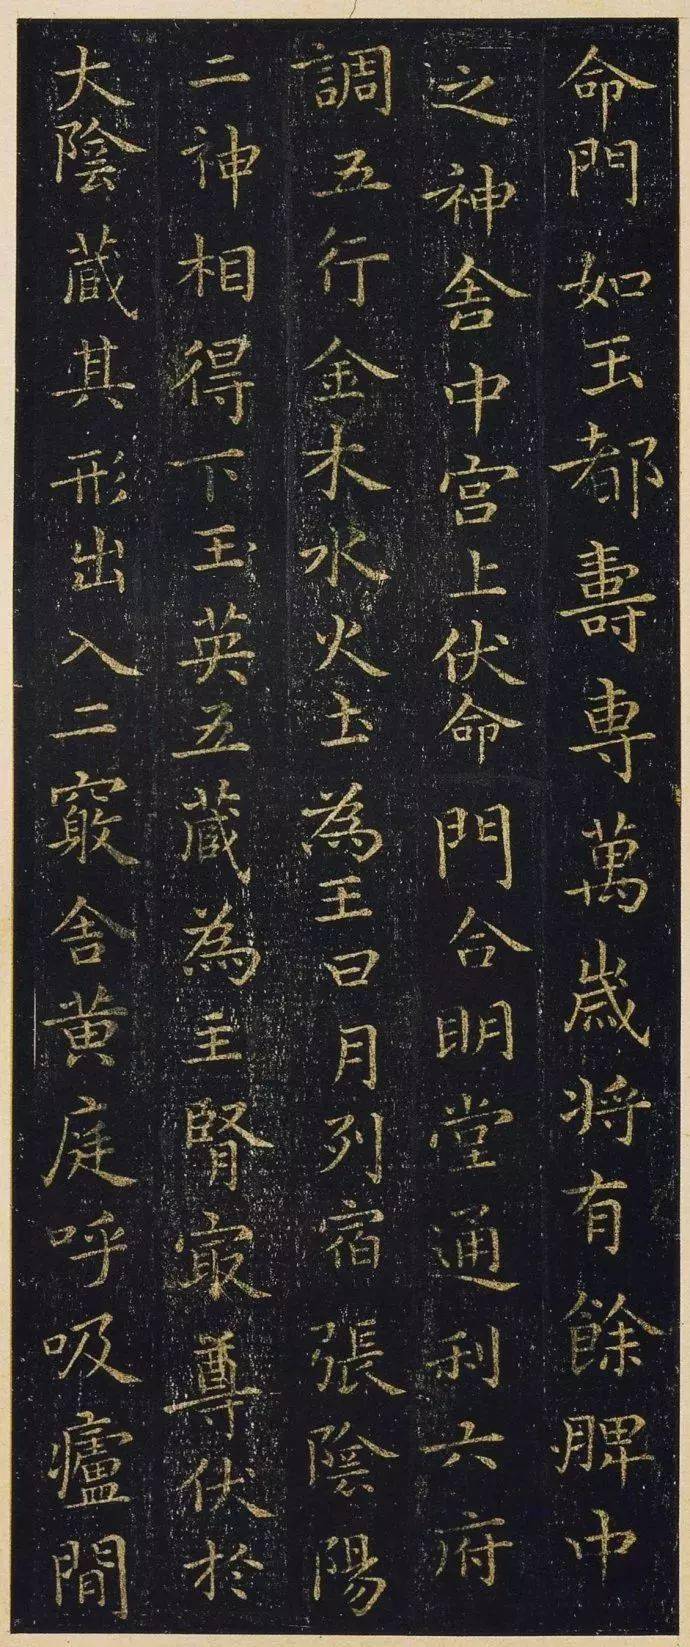 命門如玉都壽専萬歲将有餘脾中
之神舍中宮上伏命門合明堂通利六府
調五行金木水火土為王日月列宿張陰陽
二神相得下玉英五蔵為主腎㝡尊伏於
大陰蔵其形出入二竅舍黄庭呼吸廬間